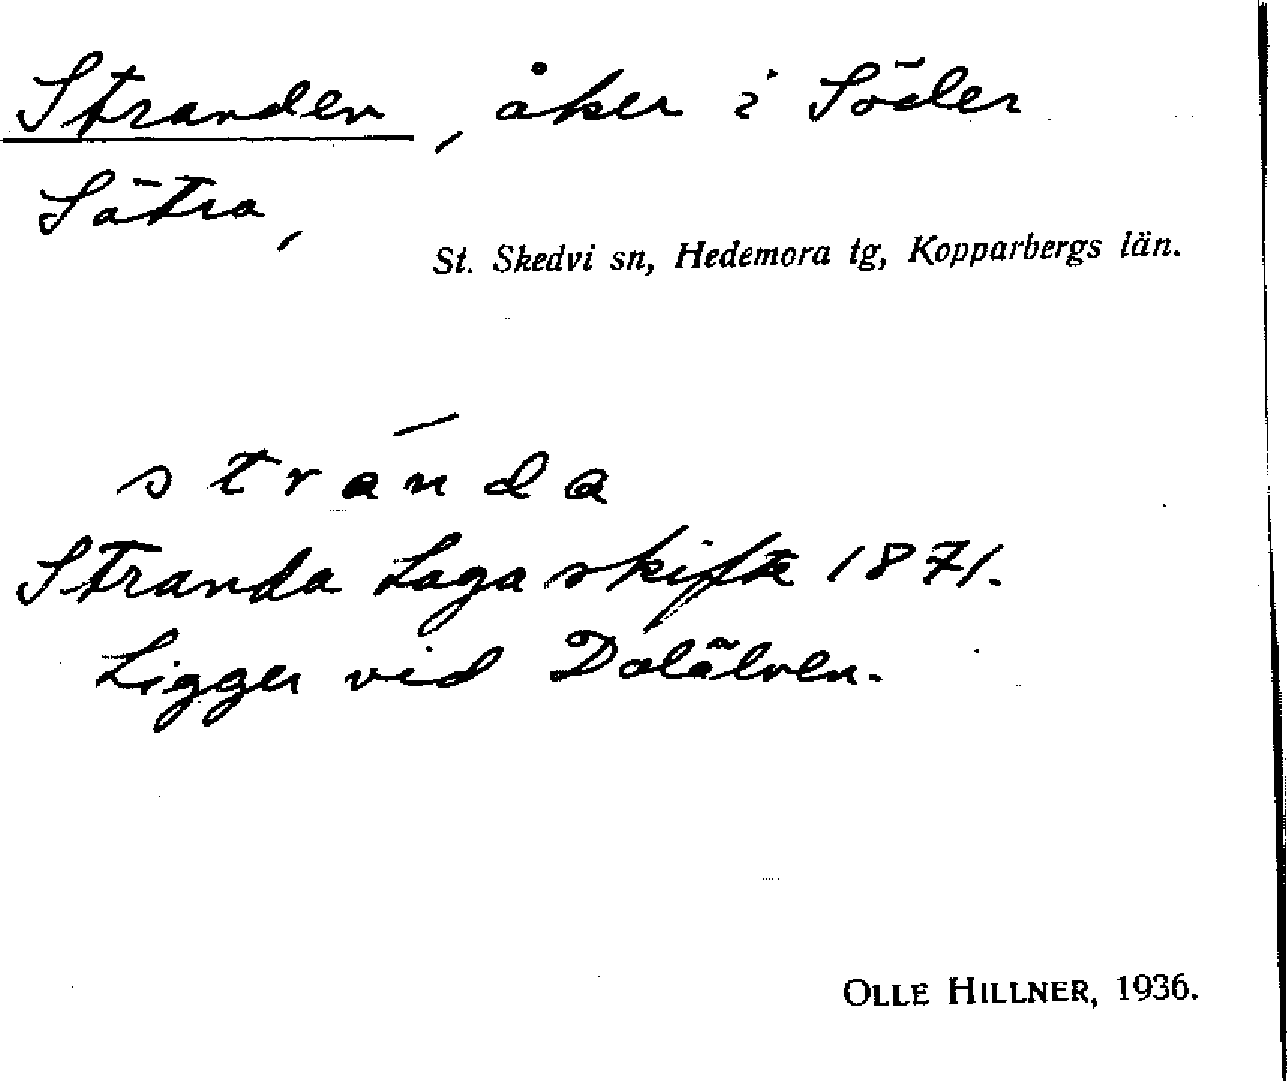 Stranden, åker i Söder
Sätra,
St. Skedvi sn, Hedemora tg, Kopparbergs län.
stránda
Stranda Laga skifte 1871.
Ligger vid Dalälven.
OLLE HILLNER, 1936.